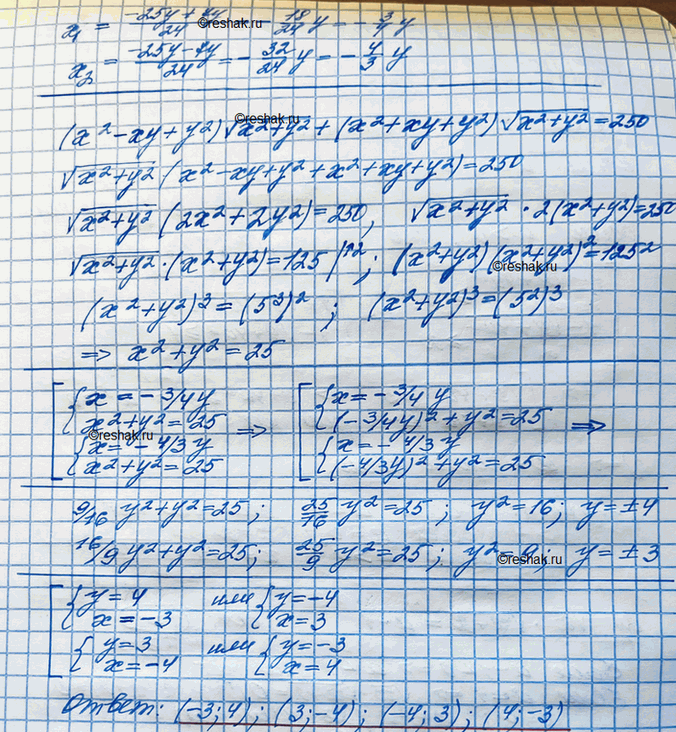 x₁ = (-25y + 7y)/24 = -18/24 y = -3/4 y
x₂ = (-25y - 7y)/24 = -32/24 y = -4/3 y
©reshak.ru
(x² - xy + y²)√(x² + y²) + (x² + xy + y²)√(x² + y²) = 250
√(x² + y²) (x² - xy + y² + x² + xy + y²) = 250
√(x² + y²) (2x² + 2y²) = 250, √(x² + y²) · 2(x² + y²) = 250
√(x² + y²) · (x² + y²) = 125 |^2; (x² + y²)(x² + y²)² = 125²
©reshak.ru
(x² + y²)³ = (5³)²; (x² + y²)³ = (5²)³
=> x² + y² = 25
[ { x = -3/4 y => [ { x = -3/4 y =>
x² + y² = 25 (-3/4 y)² + y² = 25
©reshak.ru
{ x = -4/3 y { x = -4/3 y
x² + y² = 25 (-4/3 y)² + y² = 25
9/16 y² + y² = 25; 25/16 y² = 25; y² = 16; y = ±4
16/9 y² + y² = 25; 25/9 y² = 25; y² = 9; y = ±3
©reshak.ru
[ { y = 4 или { y = -4
x = -3 x = 3
{ y = 3 или { y = -3
x = -4 x = 4
Ответ: (-3; 4); (3; -4); (-4; 3); (4; -3)